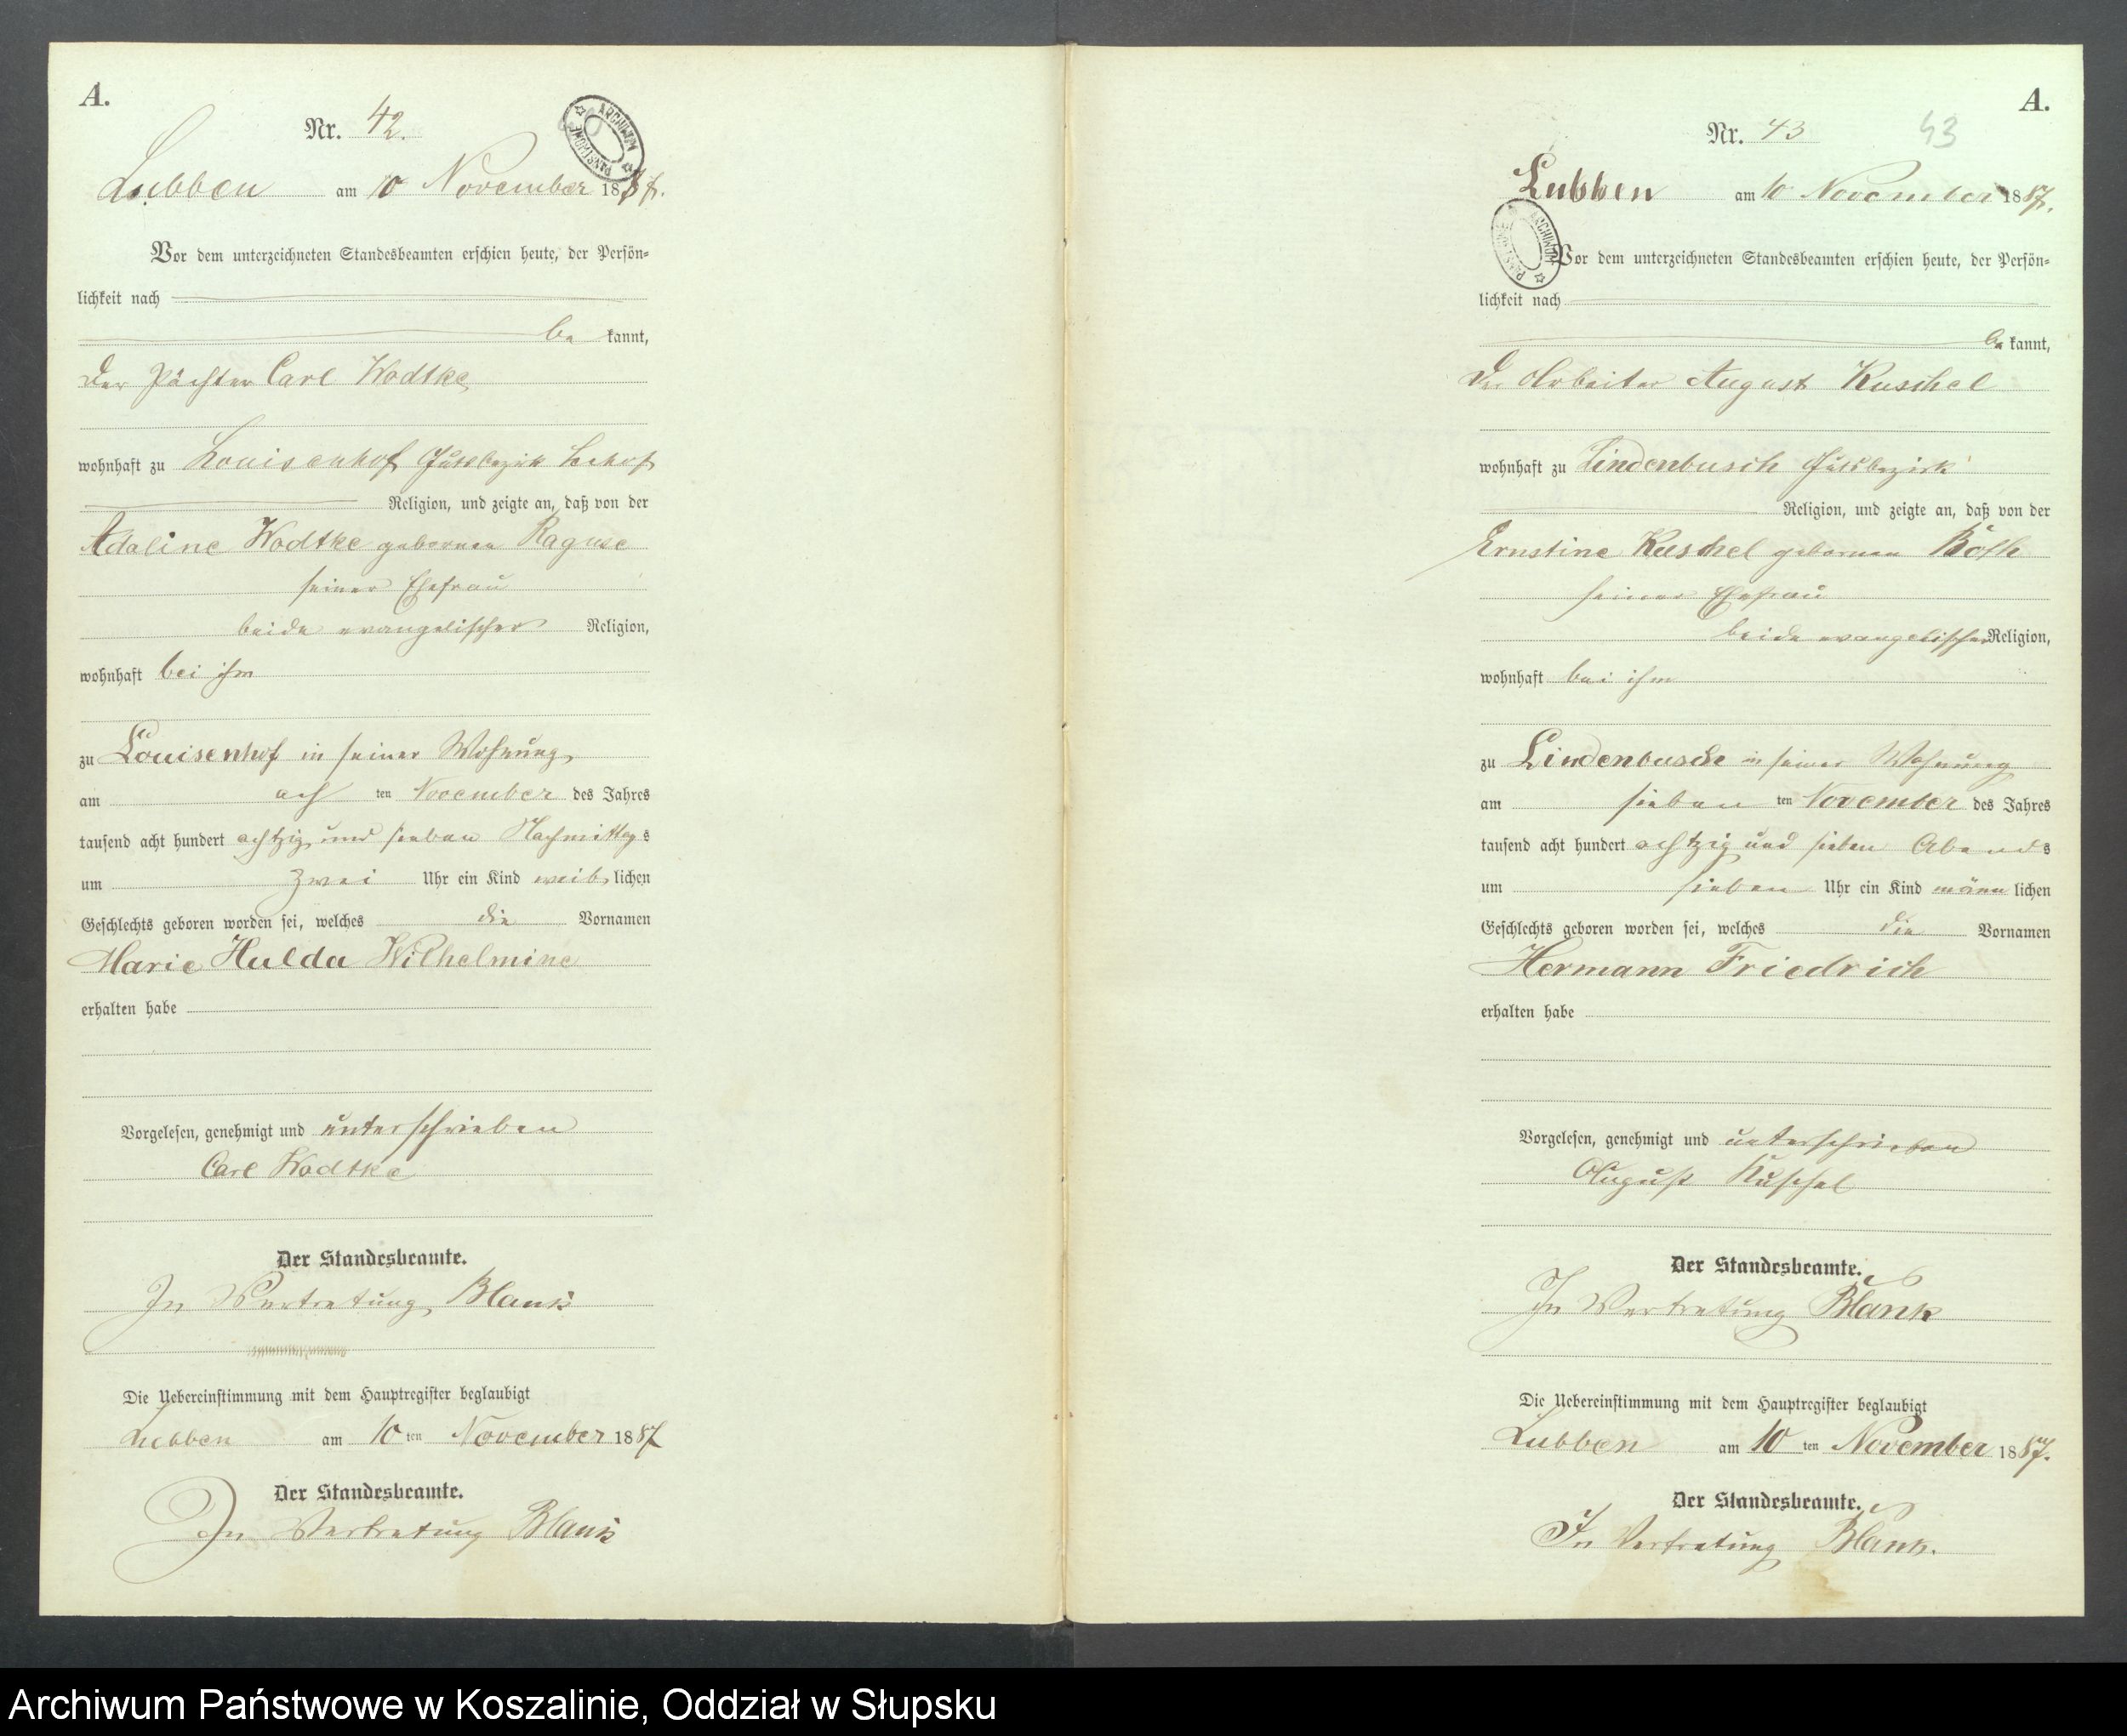 A.
Nr. 42.
ARCHIWUM PAŃSTWOWE
Lubben am 10 November 1887.
Vor dem unterzeichneten Standesbeamten erschien heute, der Persön-
lichkeit nach
be kannt,
der Pächter Carl Wodtke
wohnhaft zu Louisenhof Gutsbezirk
Religion, und zeigte an, daß von der
Adaline Wodtke geborenen Raguse
seiner Ehefrau
beide evangelischer Religion,
wohnhaft bei ihm
zu Louisenhof in seiner Wohnung
am ach ten November des Jahres
tausend acht hundert achtzig und sieben Nachmittags
um zwei Uhr ein Kind weib lichen
Geschlechts geboren worden sei, welches die Vornamen
Marie Hulda Wilhelmine
erhalten habe
Vorgelesen, genehmigt und unterschrieben
Carl Wodtke
Der Standesbeamte.
In Vertretung Blank
Die Uebereinstimmung mit dem Hauptregister beglaubigt
Lubben am 10 ten November 1887
Der Standesbeamte.
In Vertretung Blank
A.
Nr. 43
43
Lubben am 10 November 1887.
ARCHIWUM PAŃSTWOWE
Vor dem unterzeichneten Standesbeamten erschien heute, der Persön-
lichkeit nach
be kannt,
der Arbeiter August Kuschel
wohnhaft zu Lindenbusch Gutsbezirk
Religion, und zeigte an, daß von der
Ernstine Kuschel geborenen
seiner Ehefrau
beide evangelischer Religion,
wohnhaft bei ihm
zu Lindenbusch in seiner Wohnung
am sieben ten November des Jahres
tausend acht hundert achtzig und sieben Abends
um sieben Uhr ein Kind männ lichen
Geschlechts geboren worden sei, welches die Vornamen
Hermann Friedrich
erhalten habe
Vorgelesen, genehmigt und unterschrieben
August Kuschel
Der Standesbeamte.
In Vertretung Blank
Die Uebereinstimmung mit dem Hauptregister beglaubigt
Lubben am 10 ten November 1887.
Der Standesbeamte.
In Vertretung Blank.
Archiwum Państwowe w Koszalinie, Oddział w Słupsku